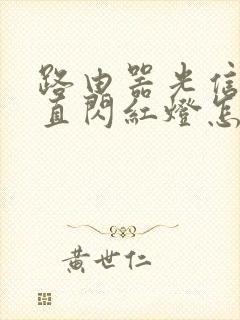 路由器光信
直閃紅燈怎
黃世仁